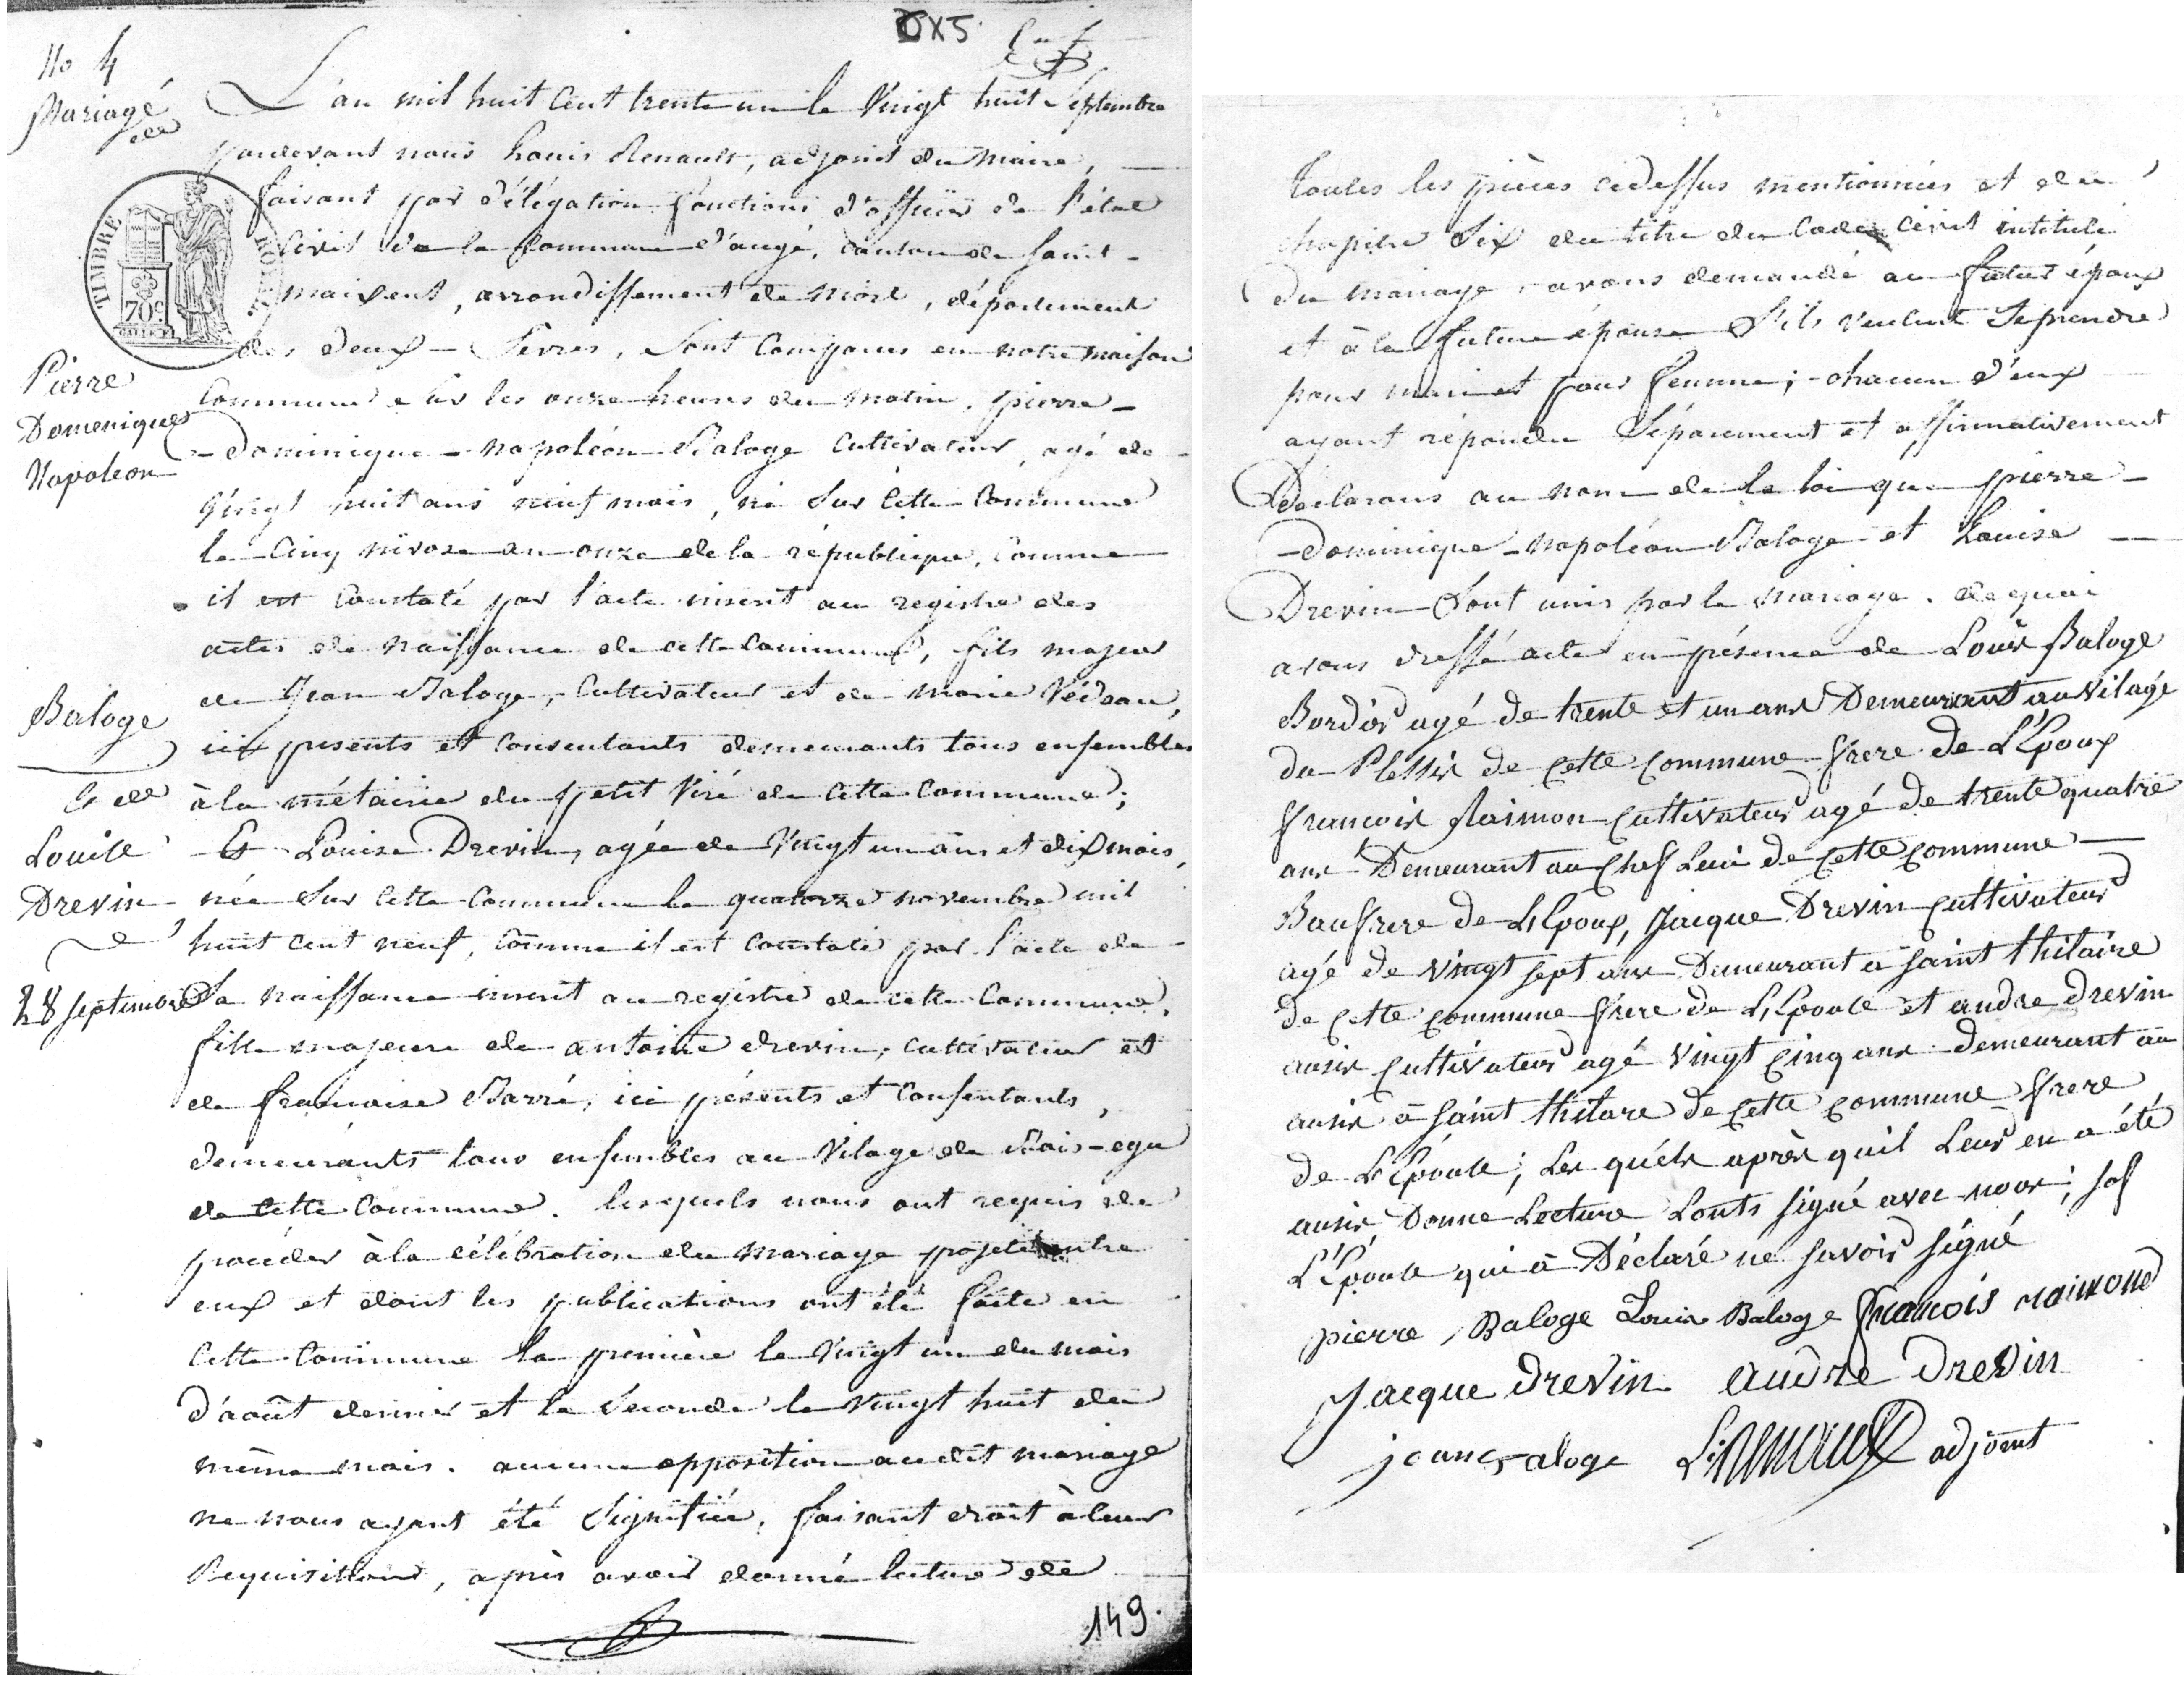 No 4
Mariage
de
Pierre
Domenique
Napoleon
Baloge
& de
Louise
Drevin
28 septembre
TIMBRE ROYAL
70c
DX5
L'an mil huit Cent trente un le Vingt huit Septembre
pardevant nous Louis Renault, adjoint du Maire,
faisant par délégation fonctions d'officier de l'état
Civil de la Commune d'augé, Canton de Saint-
maixent, arrondissement de Niort, département
des deux-Sèvres, Sont Comparus en notre maison
Commune Sur les onze heures du matin, pierre-
-dominique-napoléon Baloge Cultivateur, agé de
Vingt huit ans neuf mois, né Sur Cette Commune
le Cinq nivose an onze de la république, Comme
il est Constaté par l'acte inscrit au registre des
actes de naissance de cette Commune, fils majeur
de Jean Baloge, Cultivateur et de marie Védeau,
ici presents et Consentants demeurants tous ensembles
à la métairie du petit Viré de Cette Commune;
Et Louise Drevin, agée de Vingt un ans et dix mois,
née Sur Cette Commune le quatorze novembre mil
huit cent neuf, Comme il est Constaté par l'acte de
Sa naissance inscrit au registre de cette Commune,
fille majeure de antoine drevin, Cultivateur et
de francoise Barré, ici présents et Consentants,
demeurants tous ensembles au Vilage de
de Cette Commune. lesquels nous ont requis de
procéder à la célébration du mariage projeté entre
eux et dont les publications ont été faite en
Cette Commune la première le Vingt un du mois
d'août dernier et la Seconde le Vingt huit du
même mois. aucune opposition audit mariage
ne nous ayant été Signifiée, faisant droit à leur
Requisitions, après avoir donné lecture de
149.
toutes les pièces cidessus mentionnées et du
chapitre Six du titre du Code Civil intitulé
Du mariage, avons demandé au futur époux
et à la future épouse S'ils veulent Se prendre
pour mari et pour femme; chacun d'eux
ayant répondu Séparément et affirmativement
Déclarons au nom de la loi que pierre-
-dominique-napoléon Baloge et Louise
Drevin Sont unis par le mariage. de quoi
avons dressé acte en présence de Louis Baloge
Bordier agé de trente et un ans Demeurant au Vilage
du Plessis de Cette Commune frere de L'Epoux
francois Raimon Cultivateur agé de trente quatre
ans Demeurant au Chef Leiu de Cette Commune
Baufrere de L'Epoux, Jacque Drevin Cultivateur
agé de Vingt sept ans Demeurant a saint thilaire
de Cette Commune frere de L'Epouse et andre drevin
ausis Cultivateur agé Vingt Cinq ans demeurant au
ausis à saint thilare de Cette Commune frere
de L'Epouse; Les quéls après quil Leur en a été
ausis Donne Lecture Lonts signé avec nous; sof
L'Epouse qui à Déclaré ne savoir signé
pierre Baloge Louis Baloge francois raimond
Jacque Drevin andre Drevin
jean Baloge L. Renault adjoint